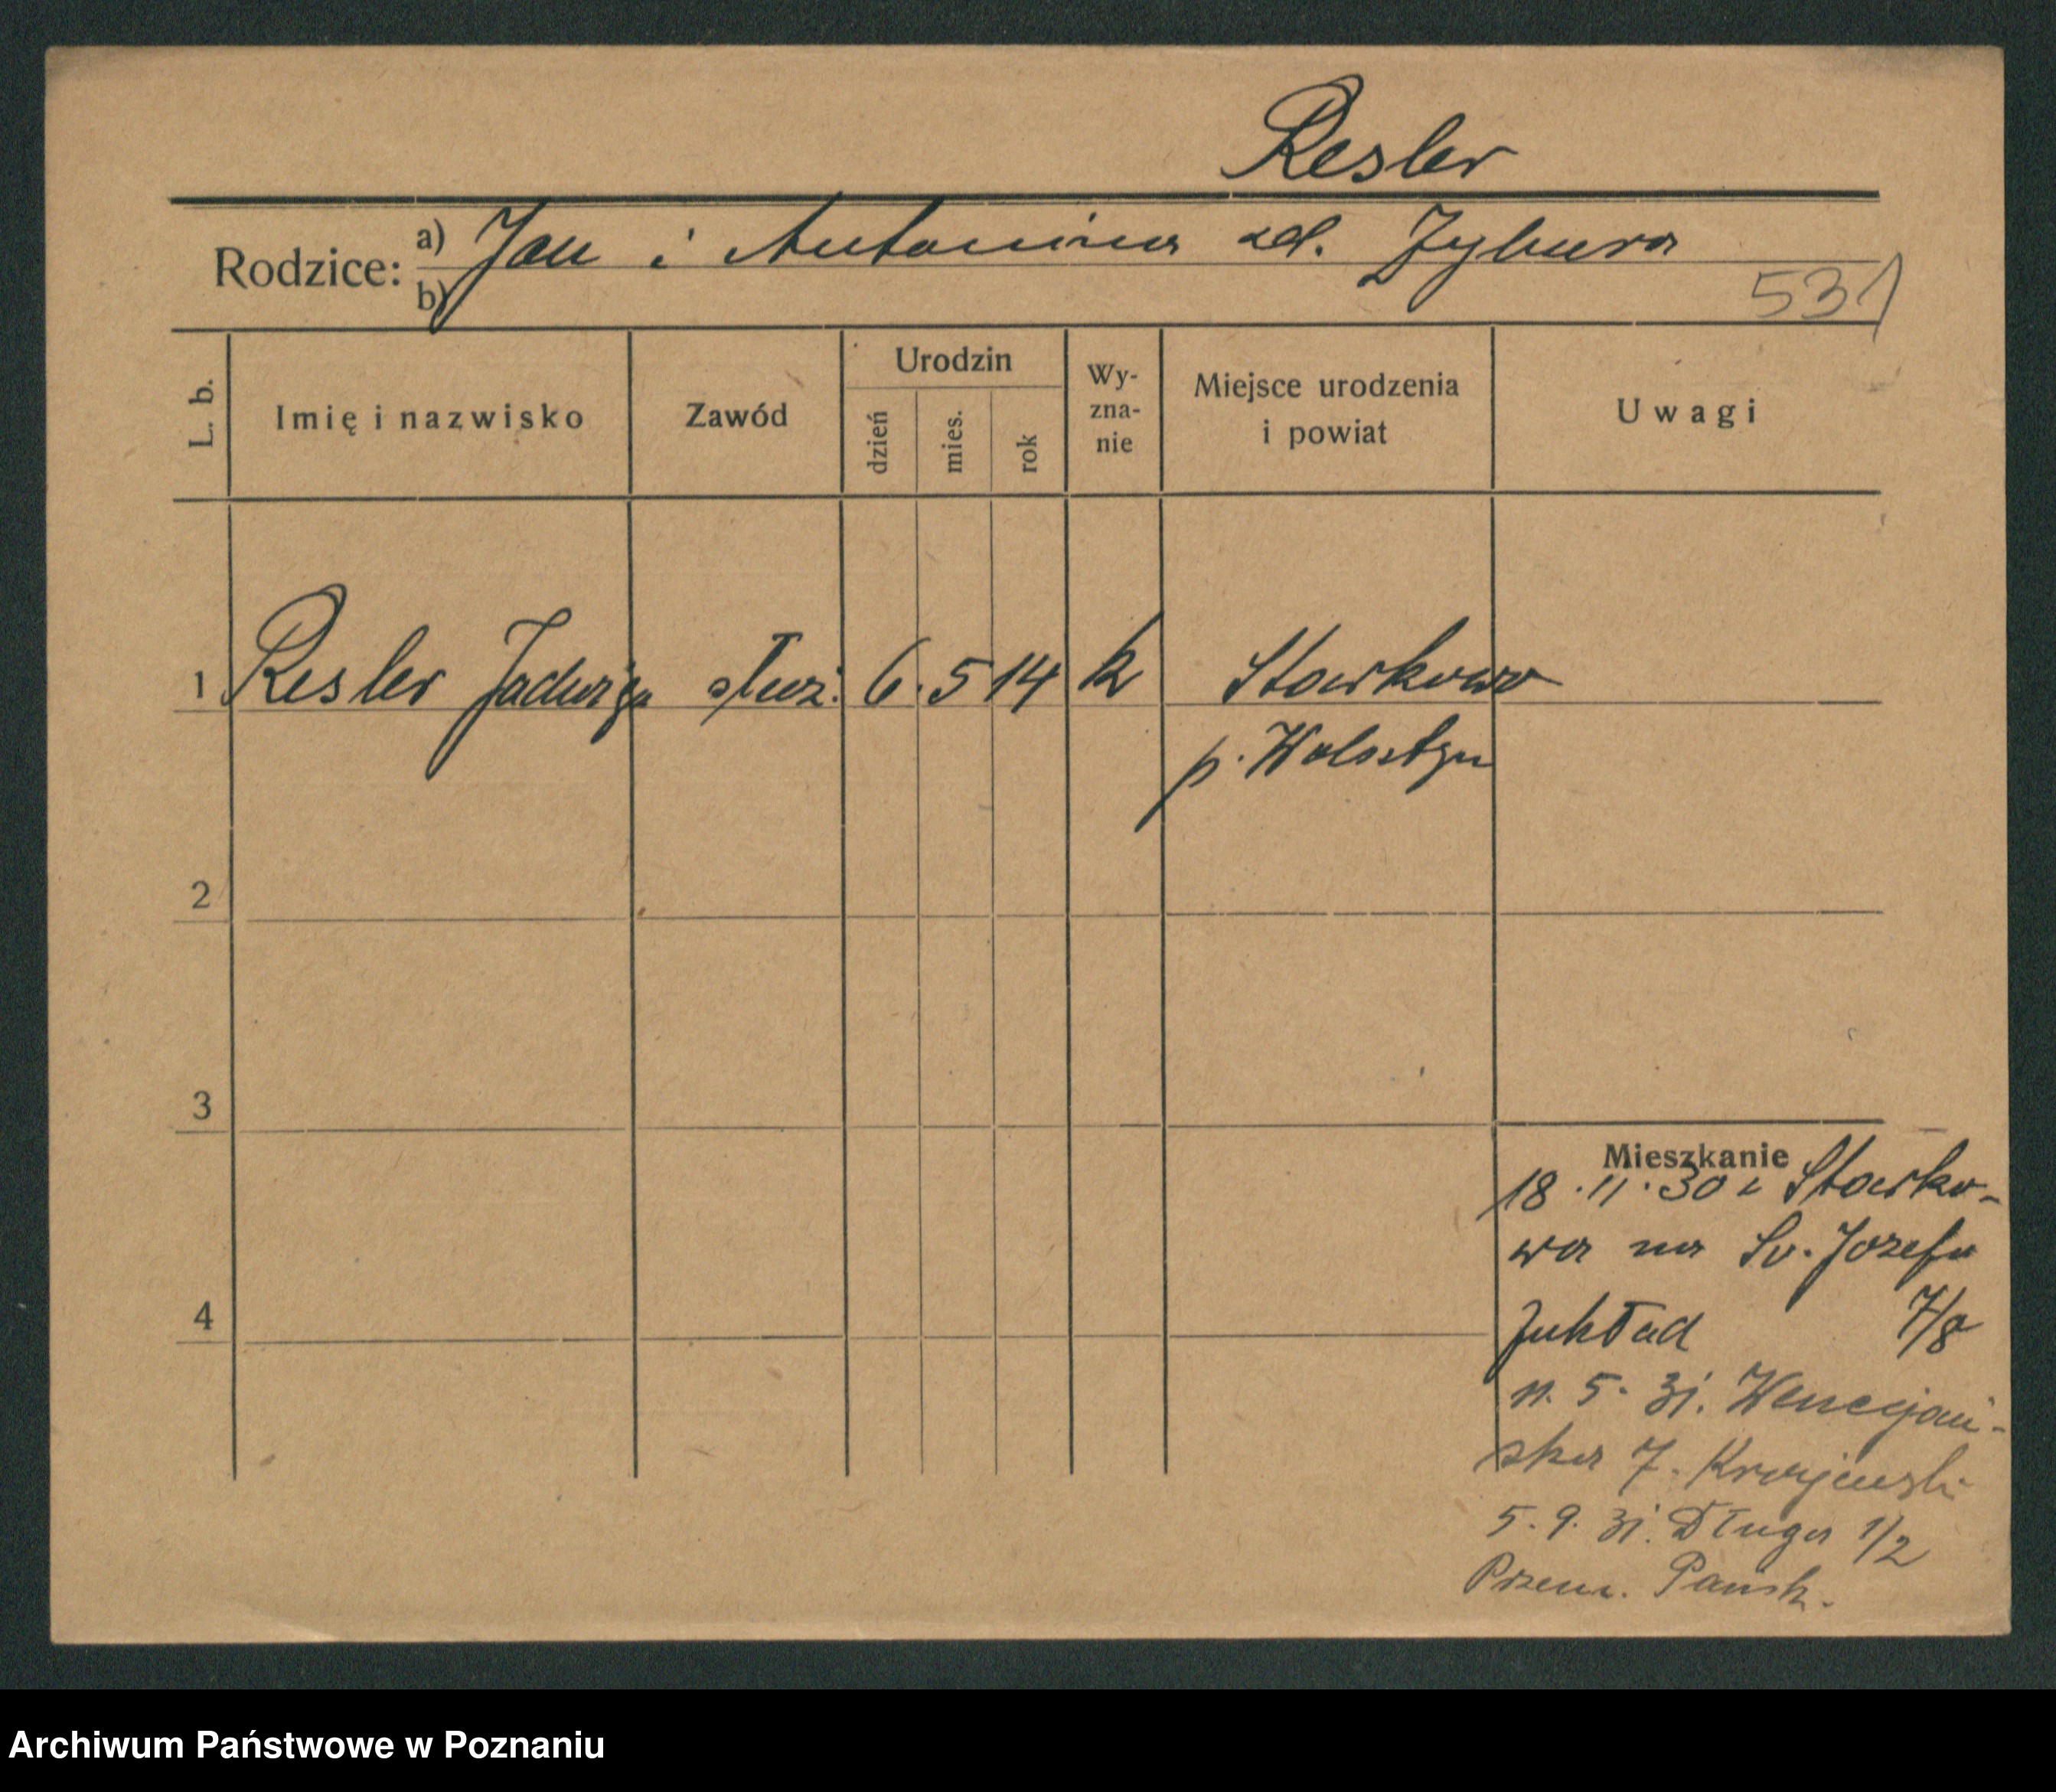 Resler
Rodzice: a) Jan i Antonina zd. Zybura
b)
531
L. b. Imię i nazwisko Zawód Urodzin dzień mies. rok Wy-zna-nie Miejsce urodzenia i powiat Uwagi
1 Resler Jadwiga służ. 6. 5 14 k Starkowo
p. Wolsztyn
2
3
Mieszkanie
18.11.30 z Starko-
wa na Św. Józefa
4
Zakład 7/8
11. 5. 31. Wenecjań-
ska 7. Krajewski
5. 9. 31. Długa 1/2
Przem. Pańsk.
Archiwum Państwowe w Poznaniu